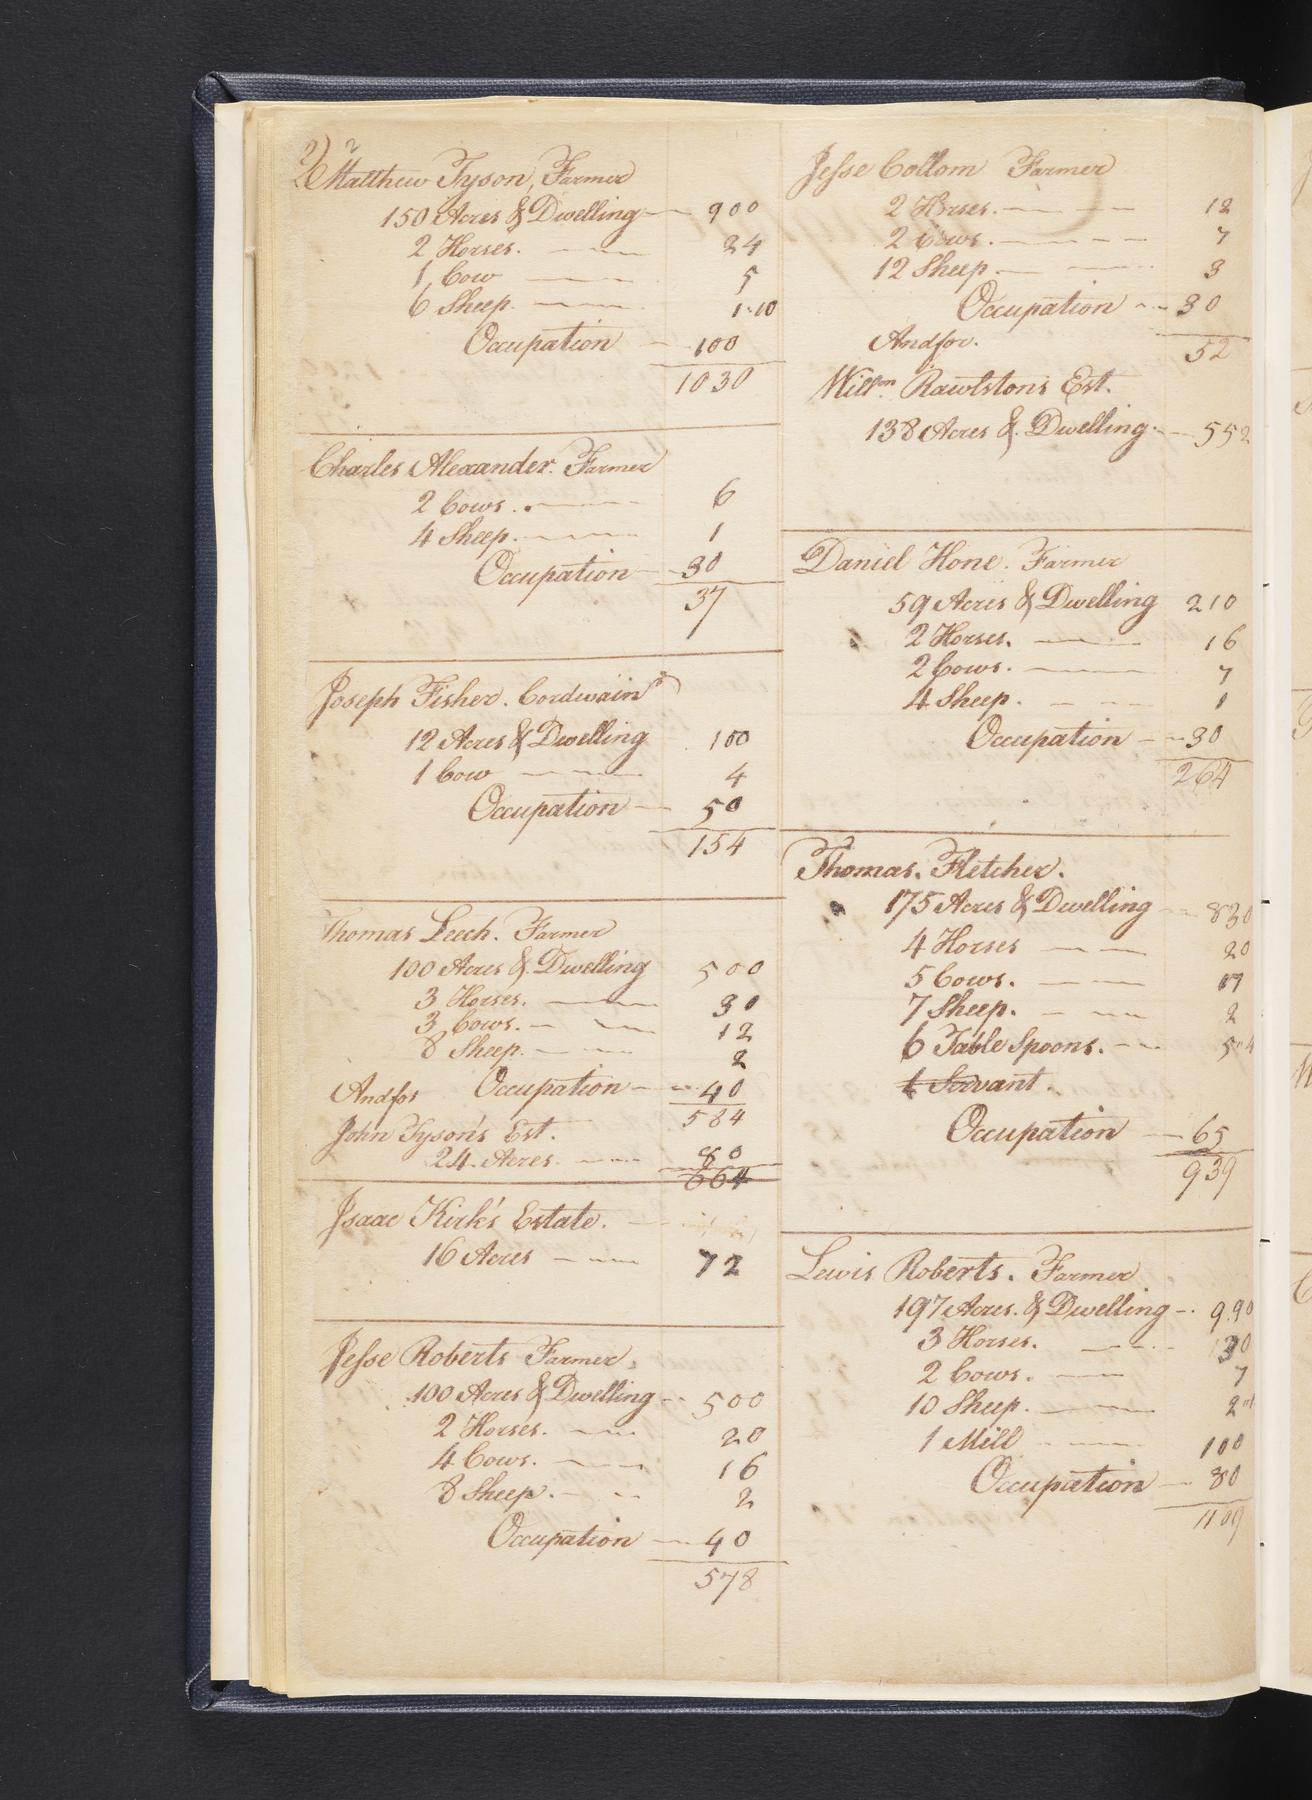 2) 2
Matthew Tyson, Farmer
150 Acres & Dwelling 900
2 Horses. 24
1 Cow 5
6 Sheep. 1.10
Occupation 100
1030
Charles Alexander. Farmer
2 Cows. 6
4 Sheep. 1
Occupation 30
37
Joseph Fisher. Cordwainr
12 Acres & Dwelling 100
1 Cow 4
Occupation 50
154
Thomas Leech. Farmer
100 Acres & Dwelling 500
3 Horses. 30
3 Cows. 12
8 Sheep. 2
Andfor Occupation 40
584
John Tyson's Est.
24 Acres 80
664
Isaac Kirk's Estate.
16 Acres 72
Jesse Roberts Farmer,
100 Acres & Dwelling 500
2 Horses. 20
4 Cows. 16
8 Sheep. 2
Occupation 40
578
Jesse Collom Farmer
2 Horses. 12
2 Cows. 7
12 Sheep 3
Occupation 30
Andfor. 52
Willm. Rawlstons Est.
138 Acres & Dwelling. 552
Daniel Hone. Farmer
59 Acres & Dwelling 210
2 Horses. 16
2 Cows. 7
4 Sheep. 1
Occupation 30
264
Thomas. Fletcher.
175 Acres & Dwelling 830
4 Horses 20
5 Cows. 17
7 Sheep. 2
6 Table Spoons. 5"4
1 Servant.
Occupation 65
939
Lewis Roberts. Farmer
197 Acres. & Dwelling 990
3 Horses. 30
2 Cows. 7
10 Sheep. 2"
1 Mill 100
Occupation 80